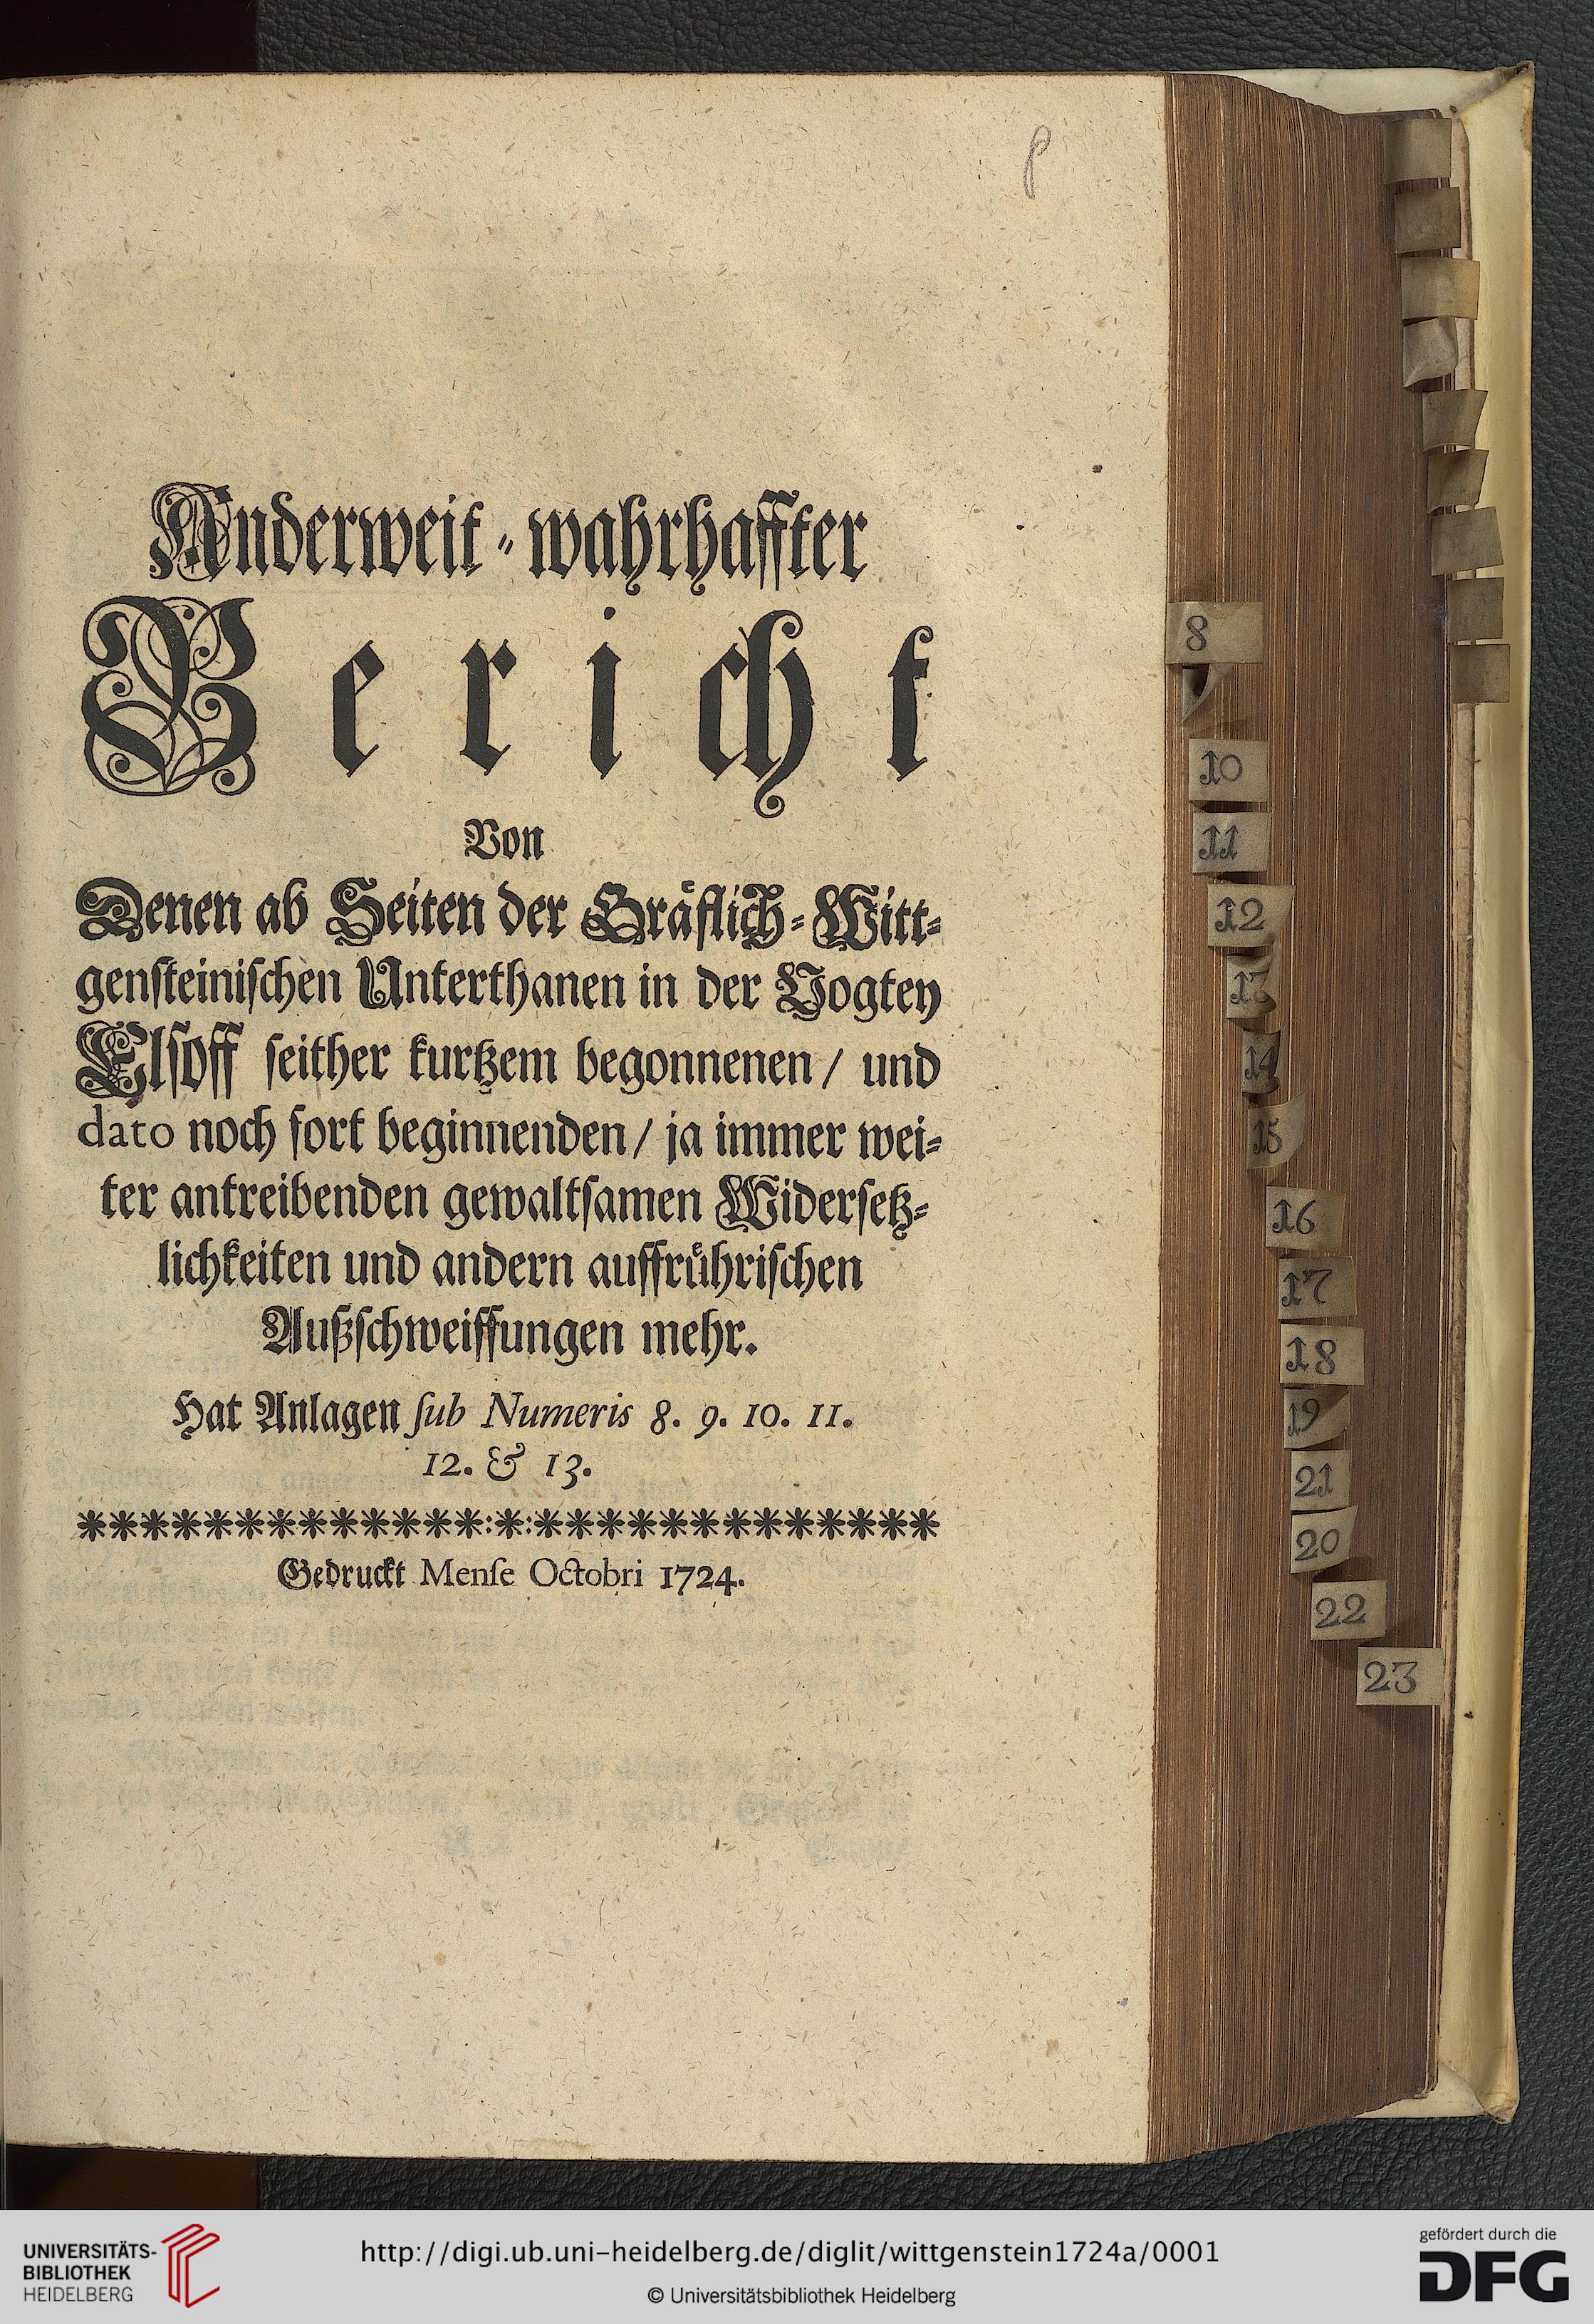 Anderweit-wahrhaffter
Bericht
Von
Denen ab Seiten der Gräflich-Witt-
gensteinischen Unterthanen in der Vogtey
Elsoff seither kurtzem begonnenen / und
dato noch fort beginnenden / ja immer wei-
ter antreibenden gewaltsamen Widersetz-
lichkeiten und andern auffrührischen
Außschweiffungen mehr.
Hat Anlagen sub Numeris 8. 9. 10. 11.
12. & 13.
Gedruckt Mense Octobri 1724.
8
10
11
12
13
14
15
16
17
18
19
21
20
22
23
UNIVERSITÄTS-
BIBLIOTHEK
HEIDELBERG
http://digi.ub.uni-heidelberg.de/diglit/wittgenstein1724a/0001
© Universitätsbibliothek Heidelberg
gefördert durch die
DFG